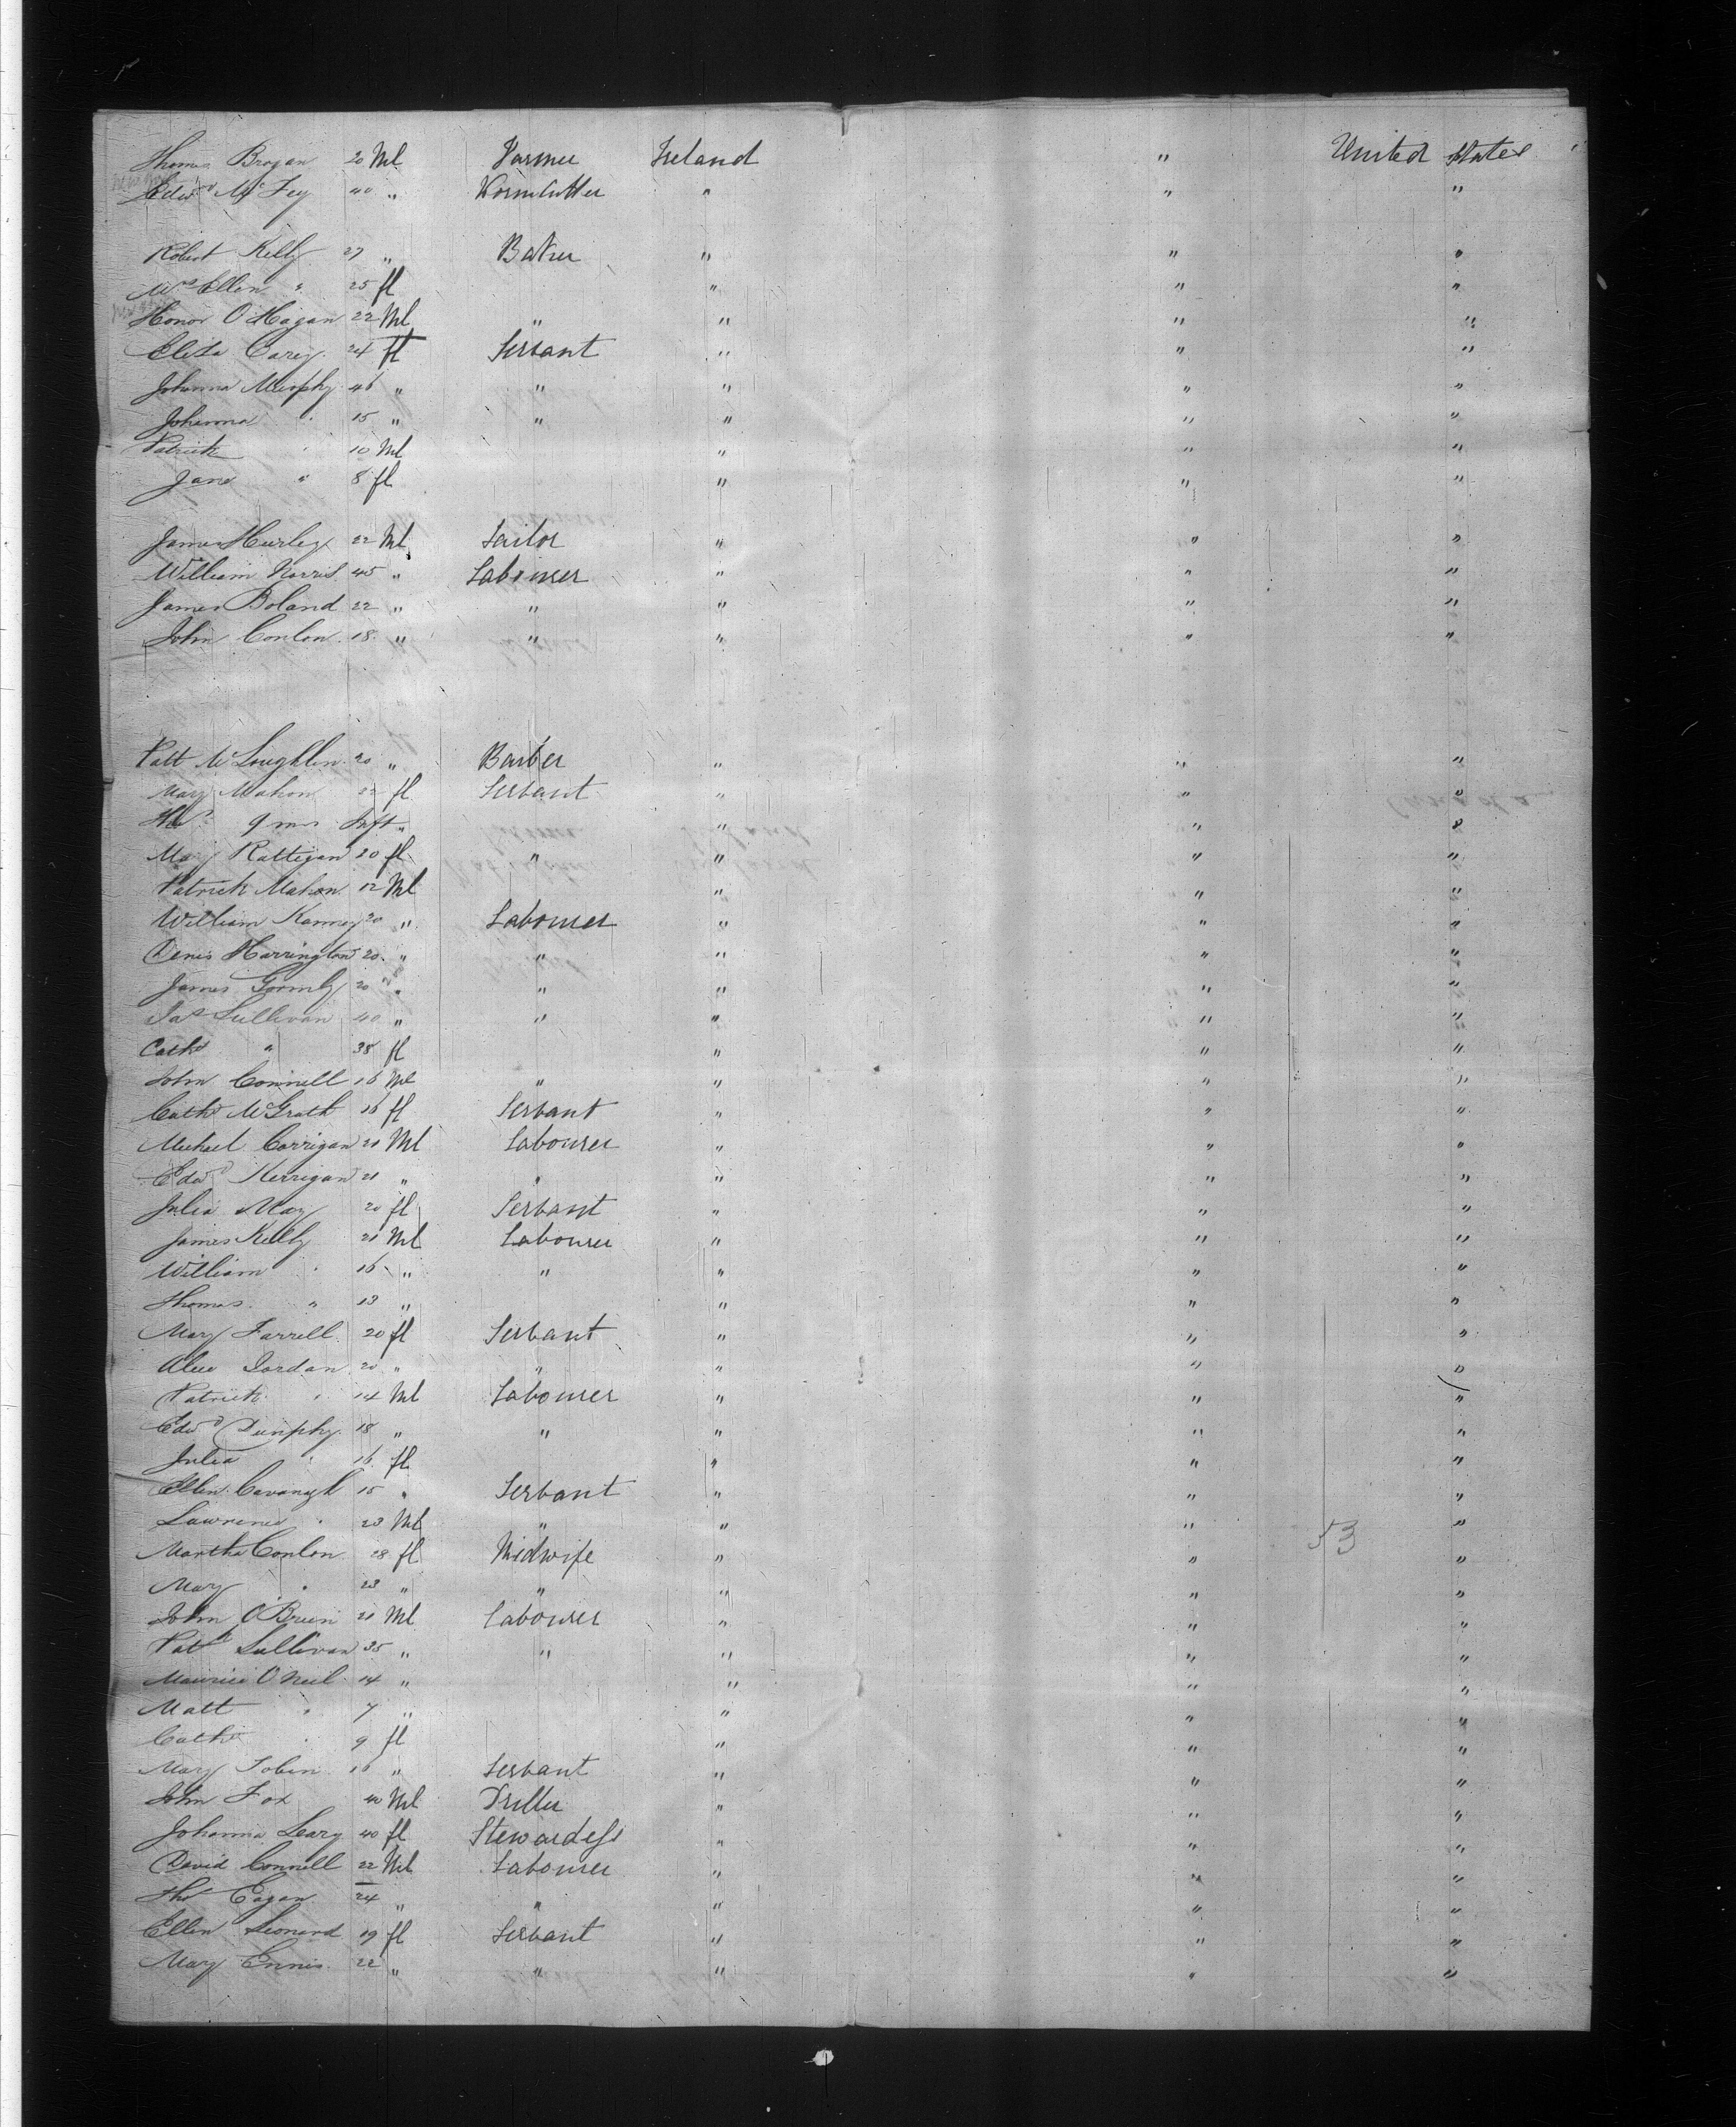 Thomas Brogan 20 Ml Farmer Ireland " United States
Edwd McFey 40 " " " "
Robert Kelly 27 " Baker " " "
Mrs Ellen " 25 fl " " "
Honor O'Hagan 22 Ml " " " "
Eliza Carey 24 fl Servant " " "
Johanna Murphy 46 " " " " "
Johanna " 15 " " " " "
Patrick " 10 Ml " " "
Jane " 8 fl " " "
James Hurley 22 Ml Tailor " " "
William Norris 45 " Labourer " " "
James Boland 22 " " " " "
John Conlon 18 " " " " "
Patt McLoughlin 20 " Barber " " "
Mary Mahon 22 fl Servant " " "
9 mos Inft " " " "
Mary Rattigan 20 fl " " " "
Patrick Mahon 12 Ml " " "
William Kanney 20 " Labourer " " "
Denis Harrington 20 " " " " "
James Gormly 20 " " " " "
Jas Sullivan 40 " " " " "
Cathe " 38 fl " " "
John Connell 16 Ml " " " "
Cathe McGrath 16 fl Servant " " "
Michael Corrigan 21 Ml Labourer " " "
Edwd Kerrigan 21 " " " " "
Julia May 20 fl Servant " " "
James Kelly 21 Ml Labourer " " "
William " 16 " " " " "
Thomas " 13 " " " "
Mary Farrell 20 fl Servant " " "
Alice Jordan 20 " " " " "
Patrick " 14 Ml Labourer " " "
Edwd Dunphy 18 " " " " "
Julia " 16 fl " " "
Ellen Cavanagh 15 " Servant " " "
Lawrence " 23 Ml " " 53 "
Martha Conlon 28 fl Midwife " " "
Mary " 23 " " " " "
John O'Brien 21 Ml Labourer " " "
Patk Sullivan 35 " " " " "
Maurice O'Neil 14 " " " "
Matt " 7 " " " "
Cathe " 9 fl " " "
Mary Tobin 16 " Servant " " "
John Fox 40 Ml " " "
Johanna Leary 40 fl Stewardess " " "
David Connell 22 Ml Labourer " " "
Thos Eagan 24 " " " " "
Ellen Leonard 19 fl Servant " " "
Mary Ennis 22 " " " " "